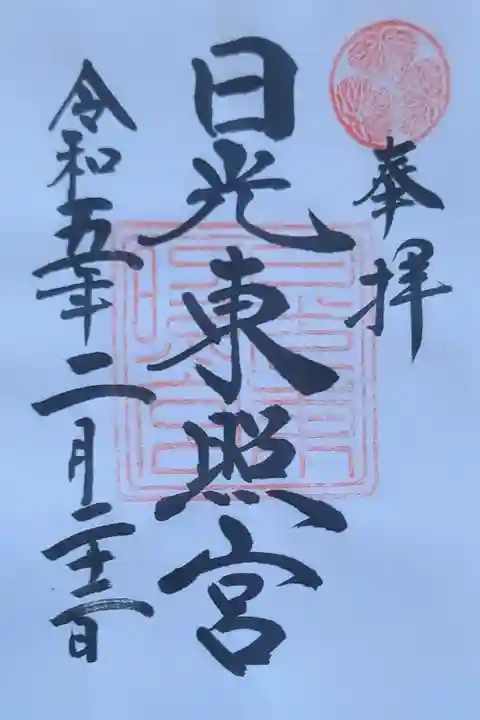 奉拝
日光東照宮
令和五年二月二十三日